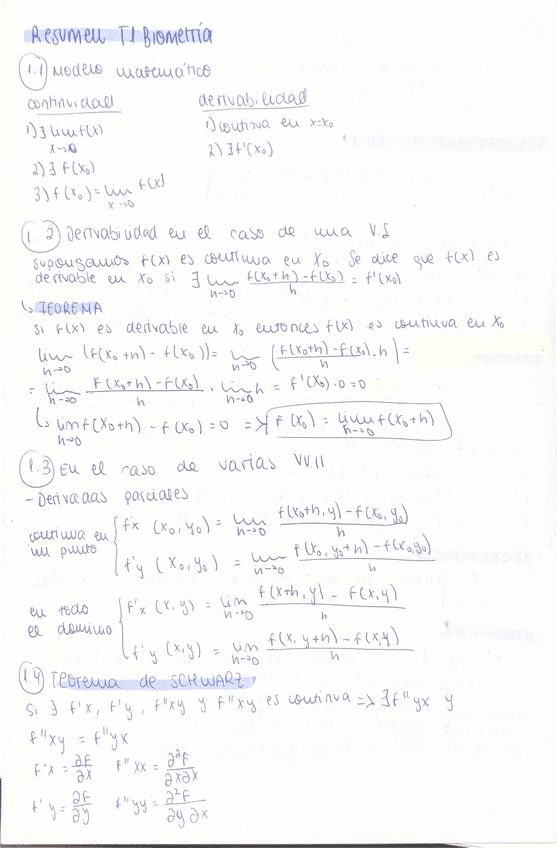 Resumen T.1 Biometría
1.1 Modelo matemático
continuidad derivabilidad
1) ∃ lim f(x) x→0 1) continua en x=x₀
2) ∃ f(x₀) 2) ∃ f'(x₀)
3) f(x₀) = lim x→0 f(x)
1.2 Derivabilidad en el caso de una V.I
supongamos f(x) es continua en x₀. Se dice que f(x) es
derivable en x₀ si ∃ lim h→0 (f(x₀+h) - f(x₀))/h = f'(x₀)
↳ TEOREMA
si f(x) es derivable en x₀ entonces f(x) es continua en x₀
lim h→0 (f(x₀+h) - f(x₀)) = lim h→0 ((f(x₀+h) - f(x₀))/h . h) =
= lim h→0 (f(x₀+h) - f(x₀))/h . lim h→0 h = f'(x₀) · 0 = 0
↳ lim h→0 f(x₀+h) - f(x₀) = 0 => f(x₀) = lim h→0 f(x₀+h)
1.3 En el caso de varias VV.II
- Derivadas parciales
continua en un punto { f'x (x₀, y₀) = lim h→0 (f(x₀+h, y) - f(x₀, y₀))/h
f'y (x₀, y₀) = lim h→0 (f(x₀, y₀+h) - f(x₀, y₀))/h
en todo el dominio { f'x (x, y) = lim h→0 (f(x+h, y) - f(x, y))/h
f'y (x, y) = lim h→0 (f(x, y+h) - f(x, y))/h
1.4 Teorema de SCHWARZ
Si ∃ f'x, f'y, f''xy y f''xy es continua => ∃ f''yx y
f''xy = f''yx
f'x = ∂f/∂x f''xx = ∂²f/∂x∂x
f'y = ∂f/∂y f''yy = ∂²f/∂y∂x